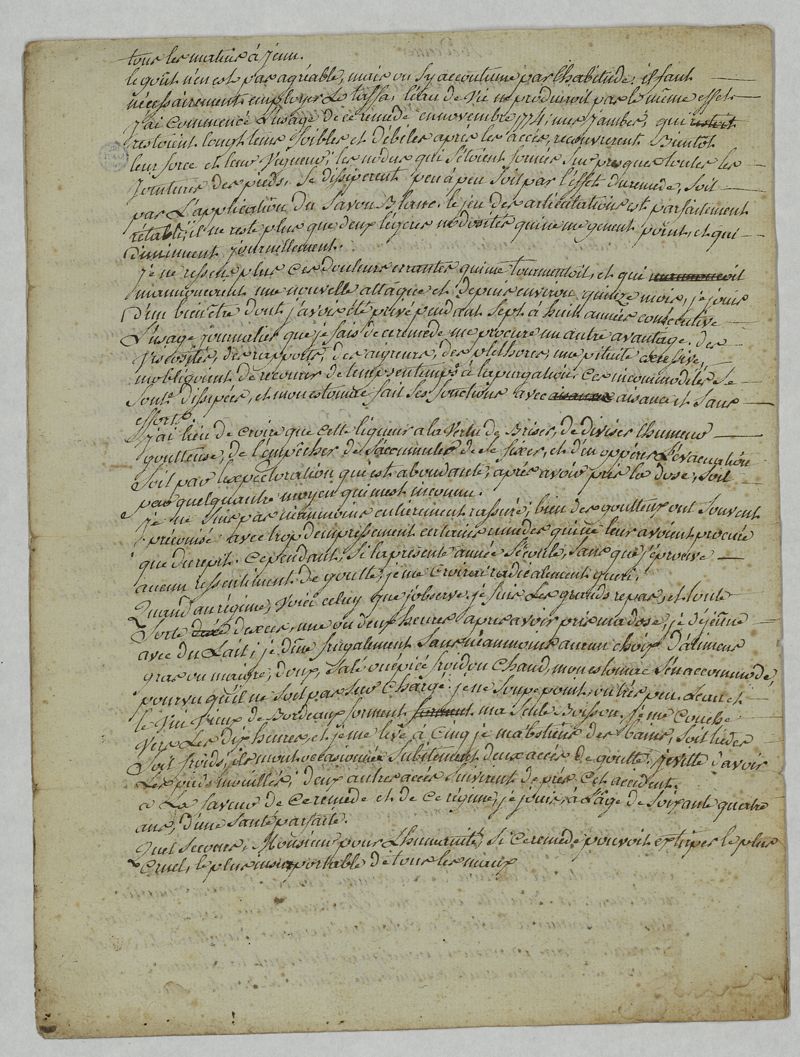 tous les matins à jeun.
le goût n'en est pas agréable, mais on s'y accoutume par l'habitude; il faut
nécessairement employer Le taffia, l'eau de vie ne produiroit pas le même effet.
J'ai commencé L'usage de ce remede en novembre 1774; mes jambes, qui restoit
restoient longtems foibles et débiles après les accès, recouvrerent Bientot
leur force et leur vigueur; les nodus qui s'étoient formés sur presque toutes les
jointures des pieds, se dissiperent peu à peu soit par l'effet du remede, soit
par L'application du savon Blanc. le jeu des articulations est parfaitement
retabli; il ne reste plus que deux légeres nodosités qui ne me genent point, et qui
diminuent journellement.
Je ne ressens plus ces douleurs errantes qui me tourmentoit, et qui
m'annonçoient une nouvelle attaque et depuis environ quinze mois, je jouis
d'un bien être dont j'avois été privé pendant sept à huit années consecutive
L'usage journalier que je fais de ce remede me procure un autre avantage. des
viscosités, des rapports, des aigreurs, des plethores, une pituite excessive,
m'obligeoient de recourir de tems en tems à la purgation. Ces incommodités se
sont dissipées, et mon estomac fait ses fonctions avec aisance aisance et sans
efforts.
J'ai lieu de croire que cette liqueur a la vertu de Briser, de diviser l'humeur
goutteuse, de l'empêcher de s'accumuler de se fixer, et d'en opérer L'évacuation
soit par l'expectoration qui est abondante, après avoir pris la dose, soit
par quelqu'autre moyen qui m'est inconnu.
Je ne suis pas néanmoins entierement rassuré; bien des goutteux ont souvent
préconisé avec trop d'empressement certains remedes qui ne leur avoient procuré
que du repit. Cependant, si la presente année s'écoule, sans que j'éprouve
aucun ressentiment de goutte, je me croirai radicalement gueri.
Quand au régime, voici celuy que j'observe. je fuis Les grands repas, et toute
sorte d'exces, une ou deux heures apres avoir pris ma dose, je déjeune
avec du Lait; je dîne frugalement sans néanmoins aucun choix d'alimens
gras ou maigre, doux, salé ou épicé froid ou chaud, mon estomac s'en accommode,
pourvu qu'il ne soit pas sur chargé. je ne soupe point, ou très peu. L'eau et
le vin vieux de Bordeaux forment forment ma seule Boisson. je me couche
vers Les dix heures, et je me leve à cinq je m'abstiens des bains, soit tiedes
soit froids, ils m'ont occasionnés subitement deux accés de goutte; j'evite d'avoir
Les pieds mouillés; deux autres accés suivirent de près cet accident.
à La faveur de ce remede et de ce régime, je jouis, à l'âge de soixante quatre
ans, d'une santé parfaite.
Quel secours, Monsieur pour L'humanité, si ce remede pouvoit extirper le plus
Cruel, le plus insuportable de tous les maux